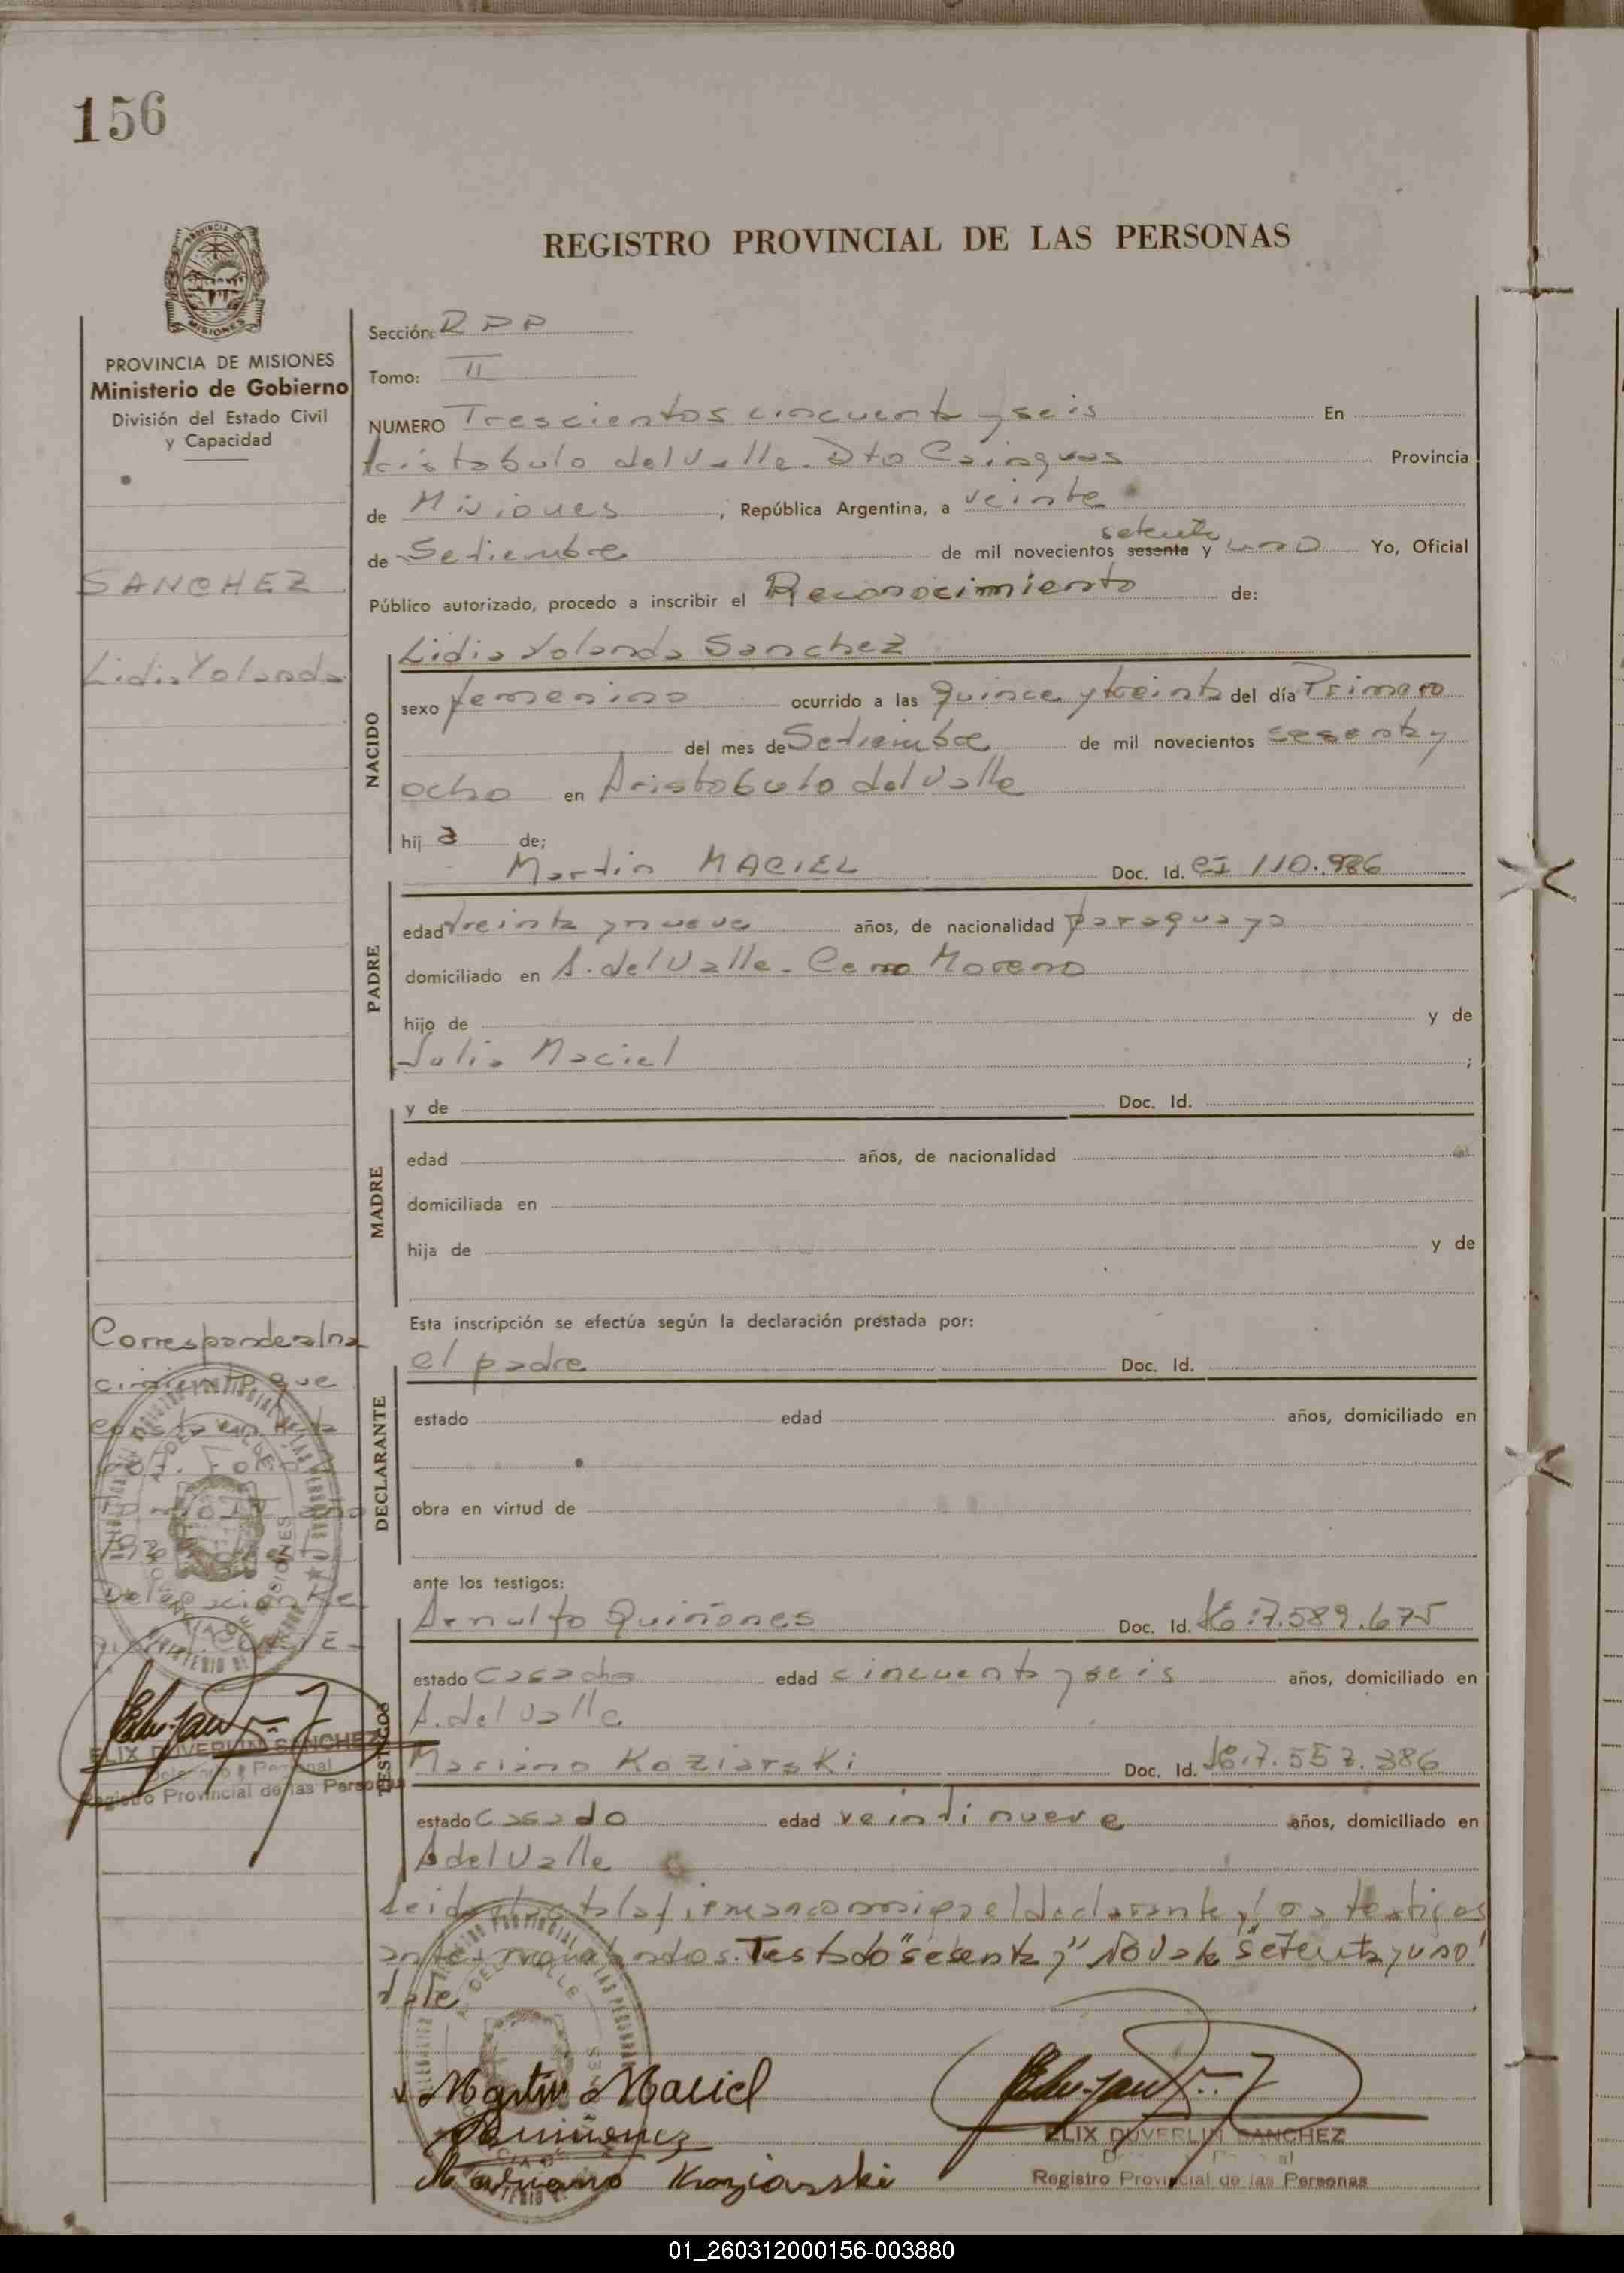 156
PROVINCIA DE MISIONES
Ministerio de Gobierno
División del Estado Civil
y Capacidad
SANCHEZ
Lidia Yolanda
REGISTRO PROVINCIAL DE LAS PERSONAS
Sección:
Tomo: II
NUMERO Trescientos cincuenta y seis En
Aristobulo del Valle. Dto Cainguas Provincia
de Misiones ; República Argentina, a veinte
de Setiembre de mil novecientos sesenta setenta y uno Yo, Oficial
Público autorizado, procedo a inscribir el Reconocimiento de:
Lidia Yolanda Sanchez
NACIDO
sexo femenino ocurrido a las Quince y treinta del día Primero
del mes de Setiembre de mil novecientos sesenta y
ocho en Aristobulo del Valle
hij a de;
Martin MACIEL Doc. Id. CI 110.986
PADRE
edad treinta y nueve años, de nacionalidad paraguaya
domiciliado en A. del Valle - Cerro Moreno
hijo de y de
Julia Maciel ;
MADRE
y de Doc. Id.
edad años, de nacionalidad
domiciliada en
hija de y de
Esta inscripción se efectúa según la declaración prestada por:
el padre Doc. Id.
DECLARANTE
estado edad años, domiciliado en
obra en virtud de
ante los testigos:
Arnulfo Quiñones Doc. Id. 7.589.675
TESTIGOS
estado casado edad cincuenta y seis años, domiciliado en
A. del Valle
Mariano Koziarski Doc. Id. 7.557.386
estado casado edad veintinueve años, domiciliado en
A del Valle
Leida el acta la firman conmigo el declarante y los testigos
antes nombrados. Testado "sesenta y" No vale "setenta y uno"
Vale
Corresponde al na
cimiento que
consta en Acta
ELIX DUVERLIN SANCHEZ
Registro Provincial de las Personas
Martin Maciel
Quiñonez
Mariano Koziarski
ELIX DUVERLIN SANCHEZ
Registro Provincial de las Personas
01_260312000156-003880